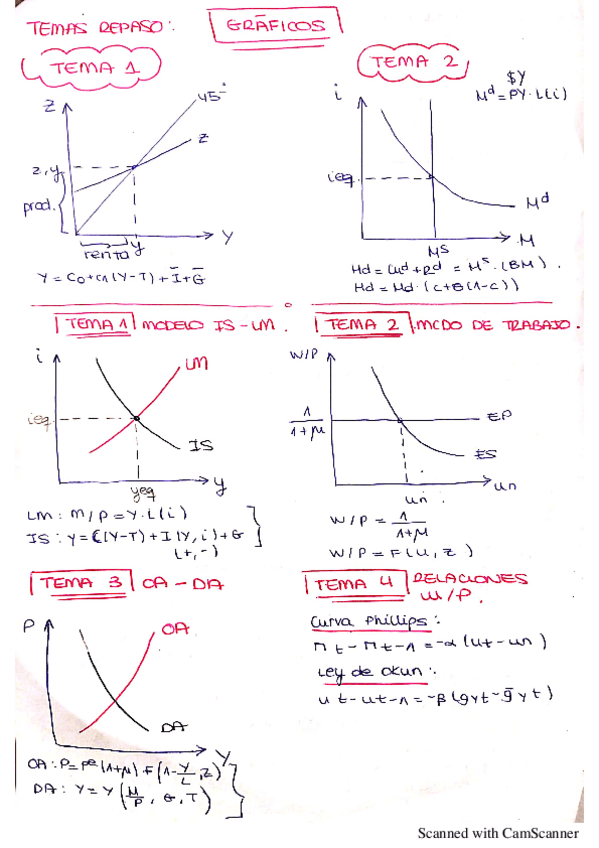 TEMAS REPASO: GRÁFICOS
TEMA 1
Z
45°
Z
Z, y
prod.
renta
y
Y
Y = C0 + C1 (Y-T) + Ī + G̅
TEMA 2
$Y
Md = PY · L(i)
i
ieq
Md
MS
M
Md = CUd + Rd = MS · (BM).
Hd = Md · (c+θ(1-c))
TEMA 1 MODELO IS-LM:
i
LM
ieq
IS
yeq
y
LM: M/P = Y · L(i)
IS: Y = C(Y-T) + I(Y, i) + G
(+, -)
TEMA 2 MCDO DE TRABAJO.
W/P
1
1+μ
EP
ES
un
un
W/P = 1
1+μ
W/P = F(u, z)
TEMA 3 OA - DA
P
OA
DA
Y
OA: P = Pe (1+μ) F (1 - Y/L, z)
DA: Y = Y (M/P, G, T)
TEMA 4 RELACIONES
W/P.
Curva Phillips:
πt - πt-1 = -α (ut - un)
Ley de Okun:
ut - ut-1 = -β (gyt - g̅yt)
Scanned with CamScanner